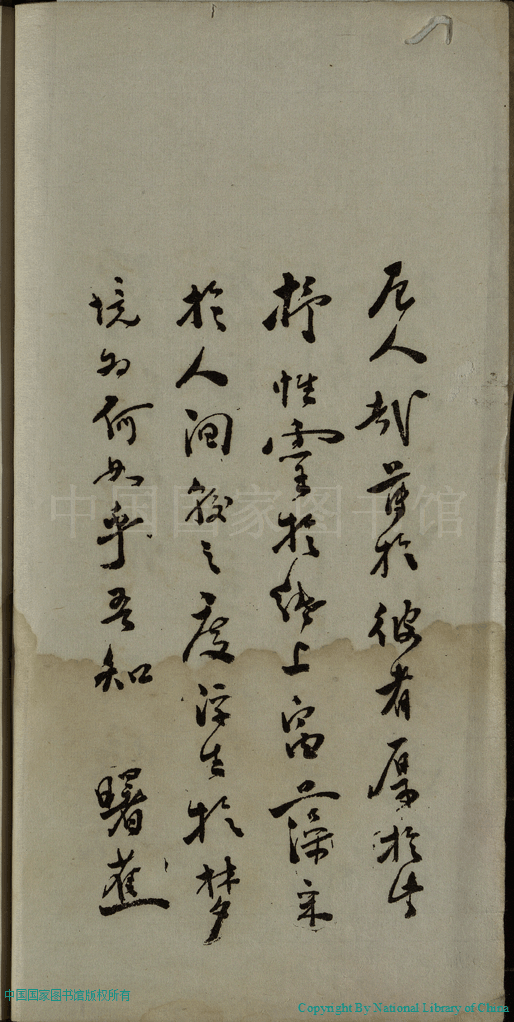 石人哉薄於彼者厚於此
抒性靈於紙上留藻采
於人间較之度浮生於梦
境为何如乎吾知
曙蕉
中国国家图书馆
中国国家图书馆版权所有
Copyright By National Library of China